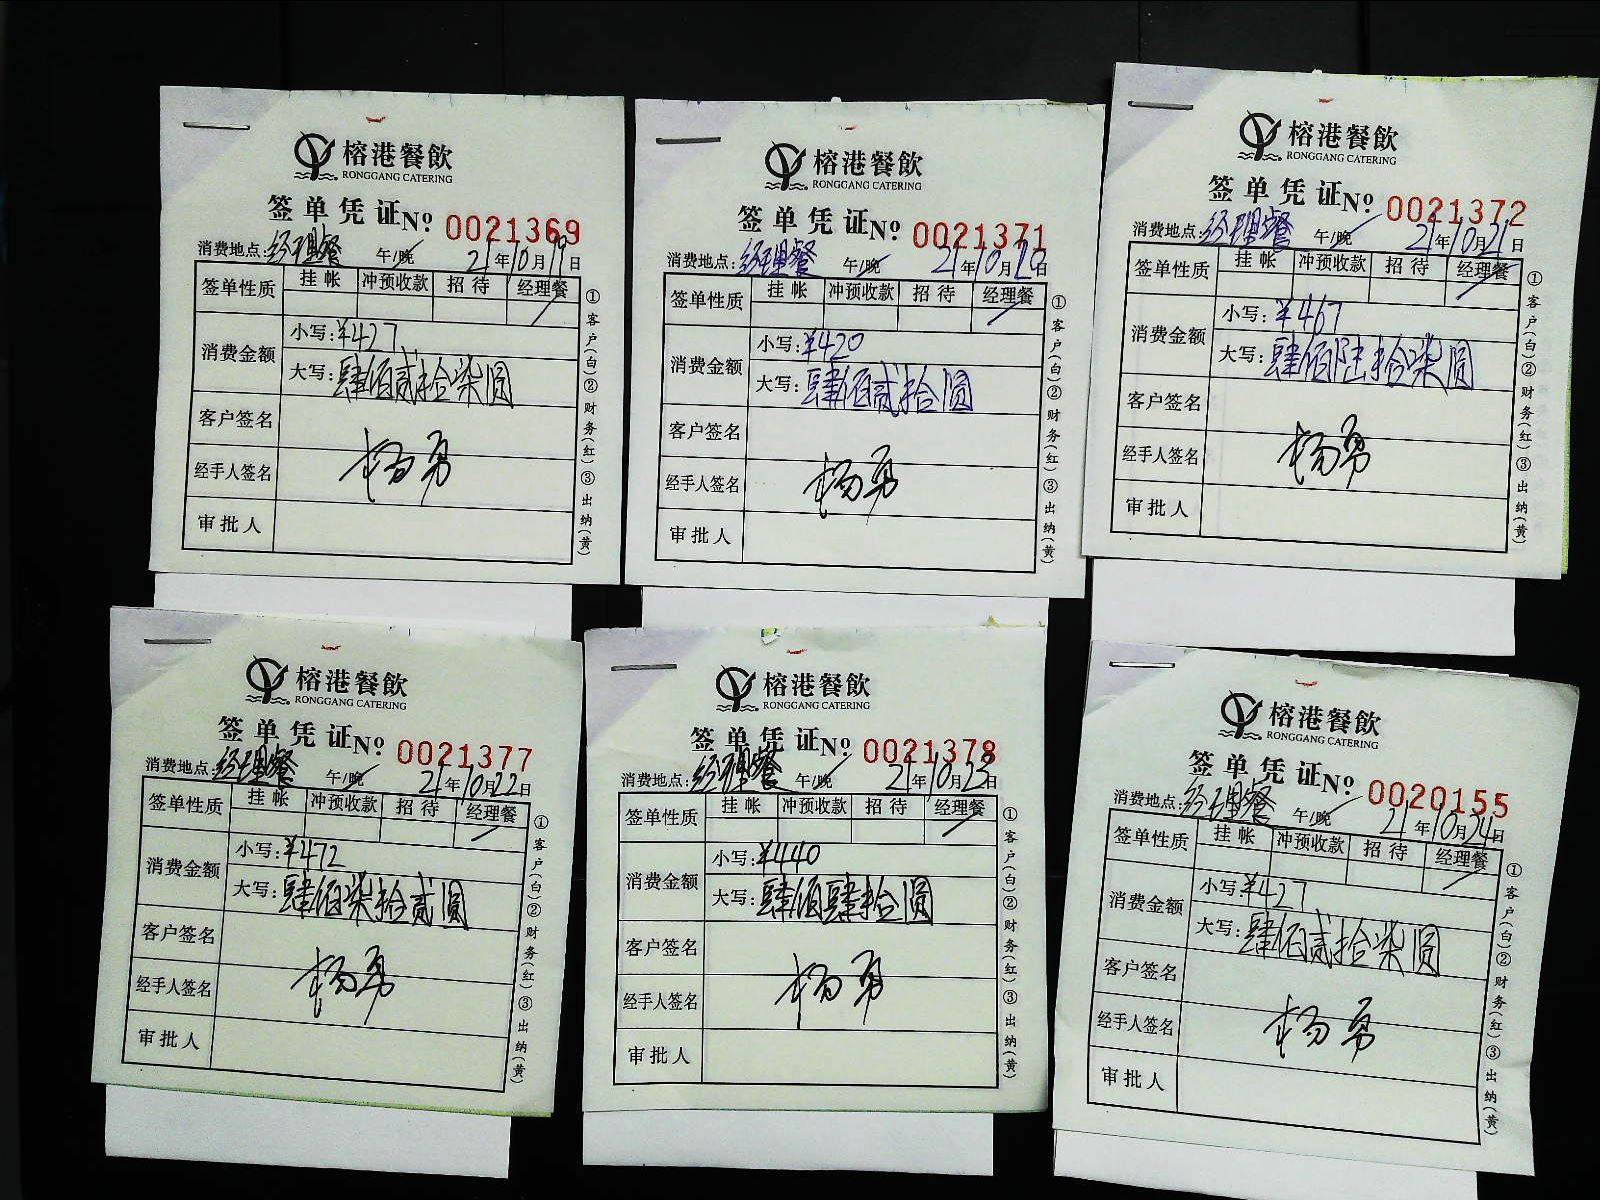 榕港餐飲
RONGGANG CATERING
签单凭证 Nº 0021369
消费地点:经理餐 午/晚 21年10月19日
签单性质 挂帐 冲预收款 招待 经理餐
消费金额 小写:¥427
大写:肆佰贰拾柒圆
客户签名
经手人签名 杨勇
审批人
①客户(白)②财务(红)③出纳(黄)
榕港餐飲
RONGGANG CATERING
签单凭证 Nº 0021371
消费地点:经理餐 午/晚 21年10月20日
签单性质 挂帐 冲预收款 招待 经理餐
消费金额 小写:¥420
大写:肆佰贰拾圆
客户签名
经手人签名 杨勇
审批人
①客户(白)②财务(红)③出纳(黄)
榕港餐飲
RONGGANG CATERING
签单凭证 Nº 0021372
消费地点:经理餐 午/晚 21年10月21日
签单性质 挂帐 冲预收款 招待 经理餐
消费金额 小写:¥467
大写:肆佰陆拾柒圆
客户签名
经手人签名 杨勇
审批人
①客户(白)②财务(红)③出纳(黄)
榕港餐飲
RONGGANG CATERING
签单凭证 Nº 0021377
消费地点:经理餐 午/晚 21年10月22日
签单性质 挂帐 冲预收款 招待 经理餐
消费金额 小写:¥472
大写:肆佰柒拾贰圆
客户签名
经手人签名 杨勇
审批人
①客户(白)②财务(红)③出纳(黄)
榕港餐飲
RONGGANG CATERING
签单凭证 Nº 0021378
消费地点:经理餐 午/晚 21年10月23日
签单性质 挂帐 冲预收款 招待 经理餐
消费金额 小写:¥440
大写:肆佰肆拾圆
客户签名
经手人签名 杨勇
审批人
①客户(白)②财务(红)③出纳(黄)
榕港餐飲
RONGGANG CATERING
签单凭证 Nº 0020155
消费地点:经理餐 午/晚 21年10月24日
签单性质 挂帐 冲预收款 招待 经理餐
消费金额 小写:¥427
大写:肆佰贰拾柒圆
客户签名
经手人签名 杨勇
审批人
①客户(白)②财务(红)③出纳(黄)